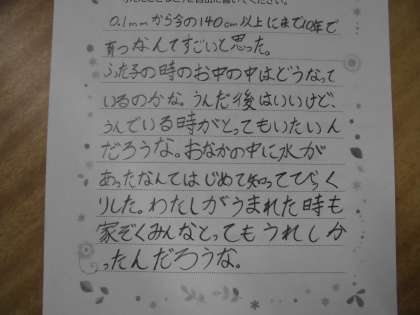 自由に書いてください。
0.1mmから今の140cm以上にまで10年で
育つなんてすごいと思った。
ふた子の時のお中の中はどうなって
いるのかな。うんだ後はいいけど、
うんでいる時がとってもいたいん
だろうな。おなかの中に水が
あったなんてはじめて知ってびっく
りした。わたしがうまれた時も
家ぞくみんなとってもうれしか
ったんだろうな。